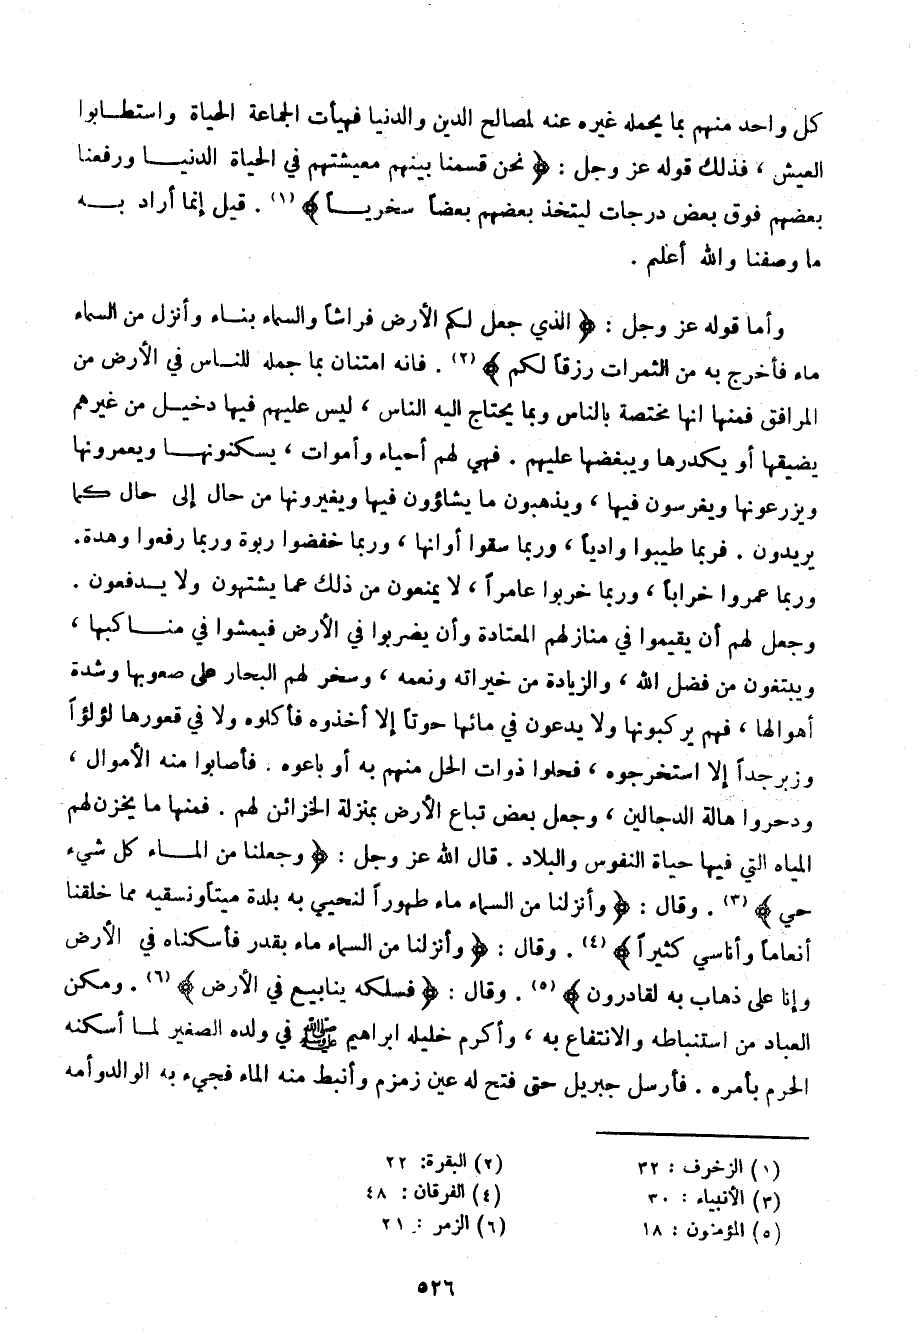 كل واحد منهم بما يحمله غيره عنه لمصالح الدين والدنيا فهيأت الجماعة الحياة واستطابوا
العيش ، فذلك قوله عز وجل : ﴿ نحن قسمنا بينهم معيشتهم في الحياة الدنيا ورفعنا
بعضهم فوق بعض درجات ليتخذ بعضهم بعضاً سخرياً ﴾ (١) . قيل إنما أراد به
ما وصفنا والله أعلم .
وأما قوله عز وجل : ﴿ الذي جعل لكم الأرض فراشاً والسماء بناء وأنزل من السماء
ماء فأخرج به من الثمرات رزقاً لكم ﴾ (٢) . فانه امتنان بما جمله للناس في الأرض من
المرافق فمنها انها مختصة بالناس وبما يحتاج اليه الناس ، ليس عليهم فيها دخيل من غيرهم
يضيقها أو يكدرها ويبغضها عليهم . فهي لهم أحياء وأموات ، يسكنونها ويعمرونها
ويزرعونها ويغرسون فيها ، ويذهبون ما يشاؤون فيها ويغيرونها من حال إلى حال كما
يريدون . فربما طيبوا وادياً ، وربما سقوا أوانها ، وربما خفضوا ربوة وربما رفعوا وهدة.
وربما عمروا خراباً ، وربما خربوا عامراً ، لا يمنعون من ذلك عما يشتهون ولا يدفعون .
وجعل لهم أن يقيموا في منازلهم المعتادة وأن يضربوا في الأرض فيمشوا في مناكبها ،
ويبتغون من فضل الله ، والزيادة من خيراته ونعمه ، وسخر لهم البحار على صعوبها وشدة
أهوالها ، فهم يركبونها ولا يدعون في مائها حوتاً إلا أخذوه فأكلوه ولا في قعورها لؤلؤاً
وزبرجداً إلا استخرجوه ، فحلوا ذوات الحل منهم به أو باعوه . فأصابوا منه الأموال ،
ودحروا هالة الدجالين ، وجعل بعض تباع الأرض بمنزلة الخزائن لهم . فمنها ما يخزن لهم
المياه التي فيها حياة النفوس والبلاد . قال الله عز وجل : ﴿ وجعلنا من الماء كل شيء
حي ﴾ (٣) . وقال : ﴿ وأنزلنا من السماء ماء طهوراً لنحيي به بلدة ميتاً ونسقيه مما خلقنا
أنعاماً وأناسي كثيراً ﴾ (٤) . وقال : ﴿ وأنزلنا من السماء ماء بقدر فأسكناه في الأرض
وإنا على ذهاب به لقادرون ﴾ (٥) . وقال : ﴿ فسلكه ينابيع في الأرض ﴾ (٦) . ومكن
العباد من استنباطه والانتفاع به ، وأكرم خليله ابراهيم ﷺ في ولده الصغير لما أسكنه
الحرم بأمره . فأرسل جبريل حتى فتح له عين زمزم وأنبط منه الماء فجيء به الوالد وأمه
(١) الزخرف : ٣٢
(٢) البقرة: ٢٢
(٣) الأنبياء : ٣٠
(٤) الفرقان : ٤٨
(٥) المؤمنون : ١٨
(٦) الزمر : ٢١
٥٢٦